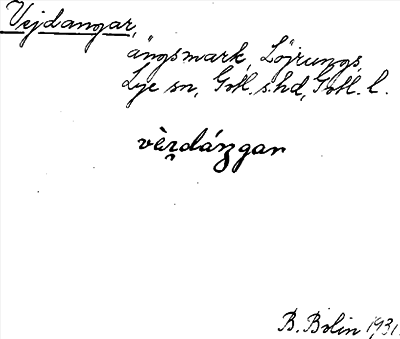 Vejdangar,
ängsmark, Lojrungs,
Lye sn, Gotl. s.hd, Gotl. l.
vèṛdáŋgar
B. Bolin 1931.